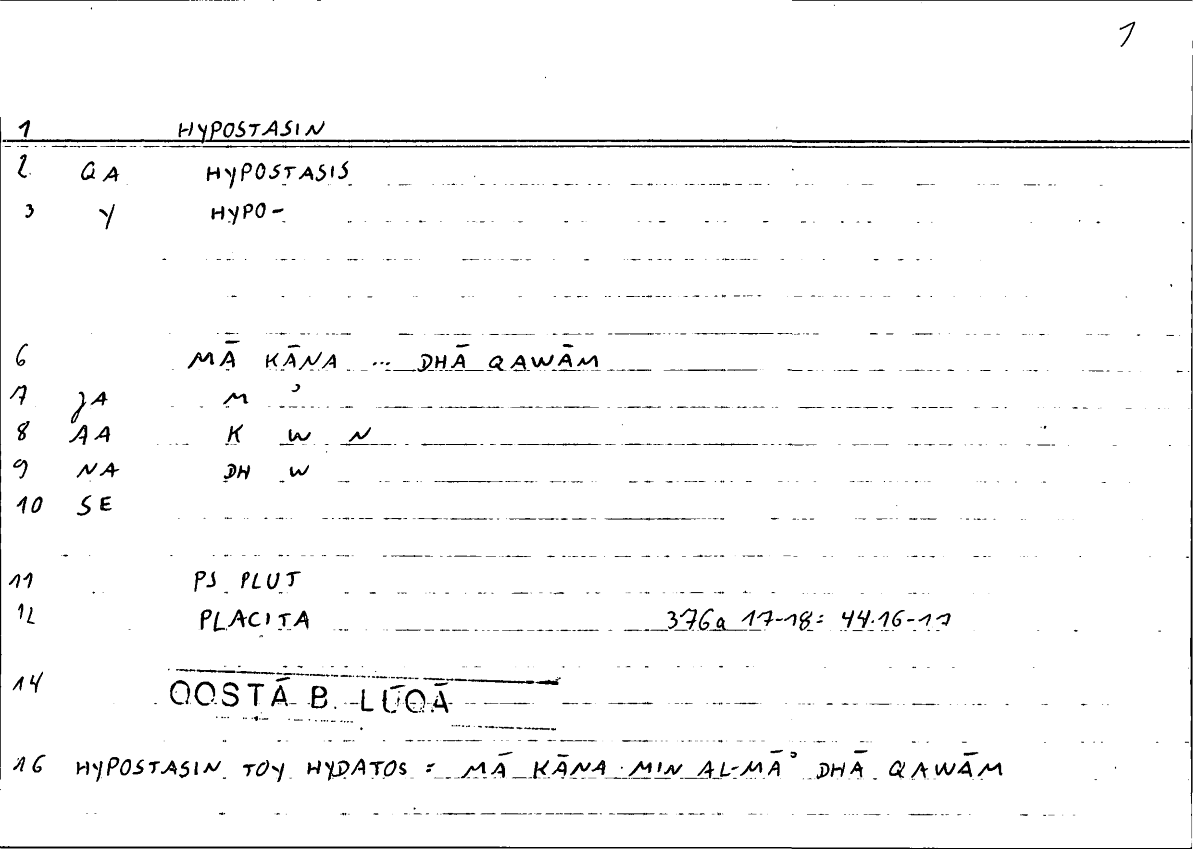 1
1 HYPOSTASIN
2 QA HYPOSTASIS
3 Y HYPO-
6 MĀ KĀNA ... DHĀ QAWĀM
7 JA M ʾ
8 AA K W N
9 NA DH W
10 SE
11 PS PLUT
12 PLACITA 376a 17-18 = 44.16-17
14 QOSTĀ B. LŪQĀ
16 HYPOSTASIN TOY HYDATOS = MĀ KĀNA MIN AL-MĀʾ DHĀ QAWĀM